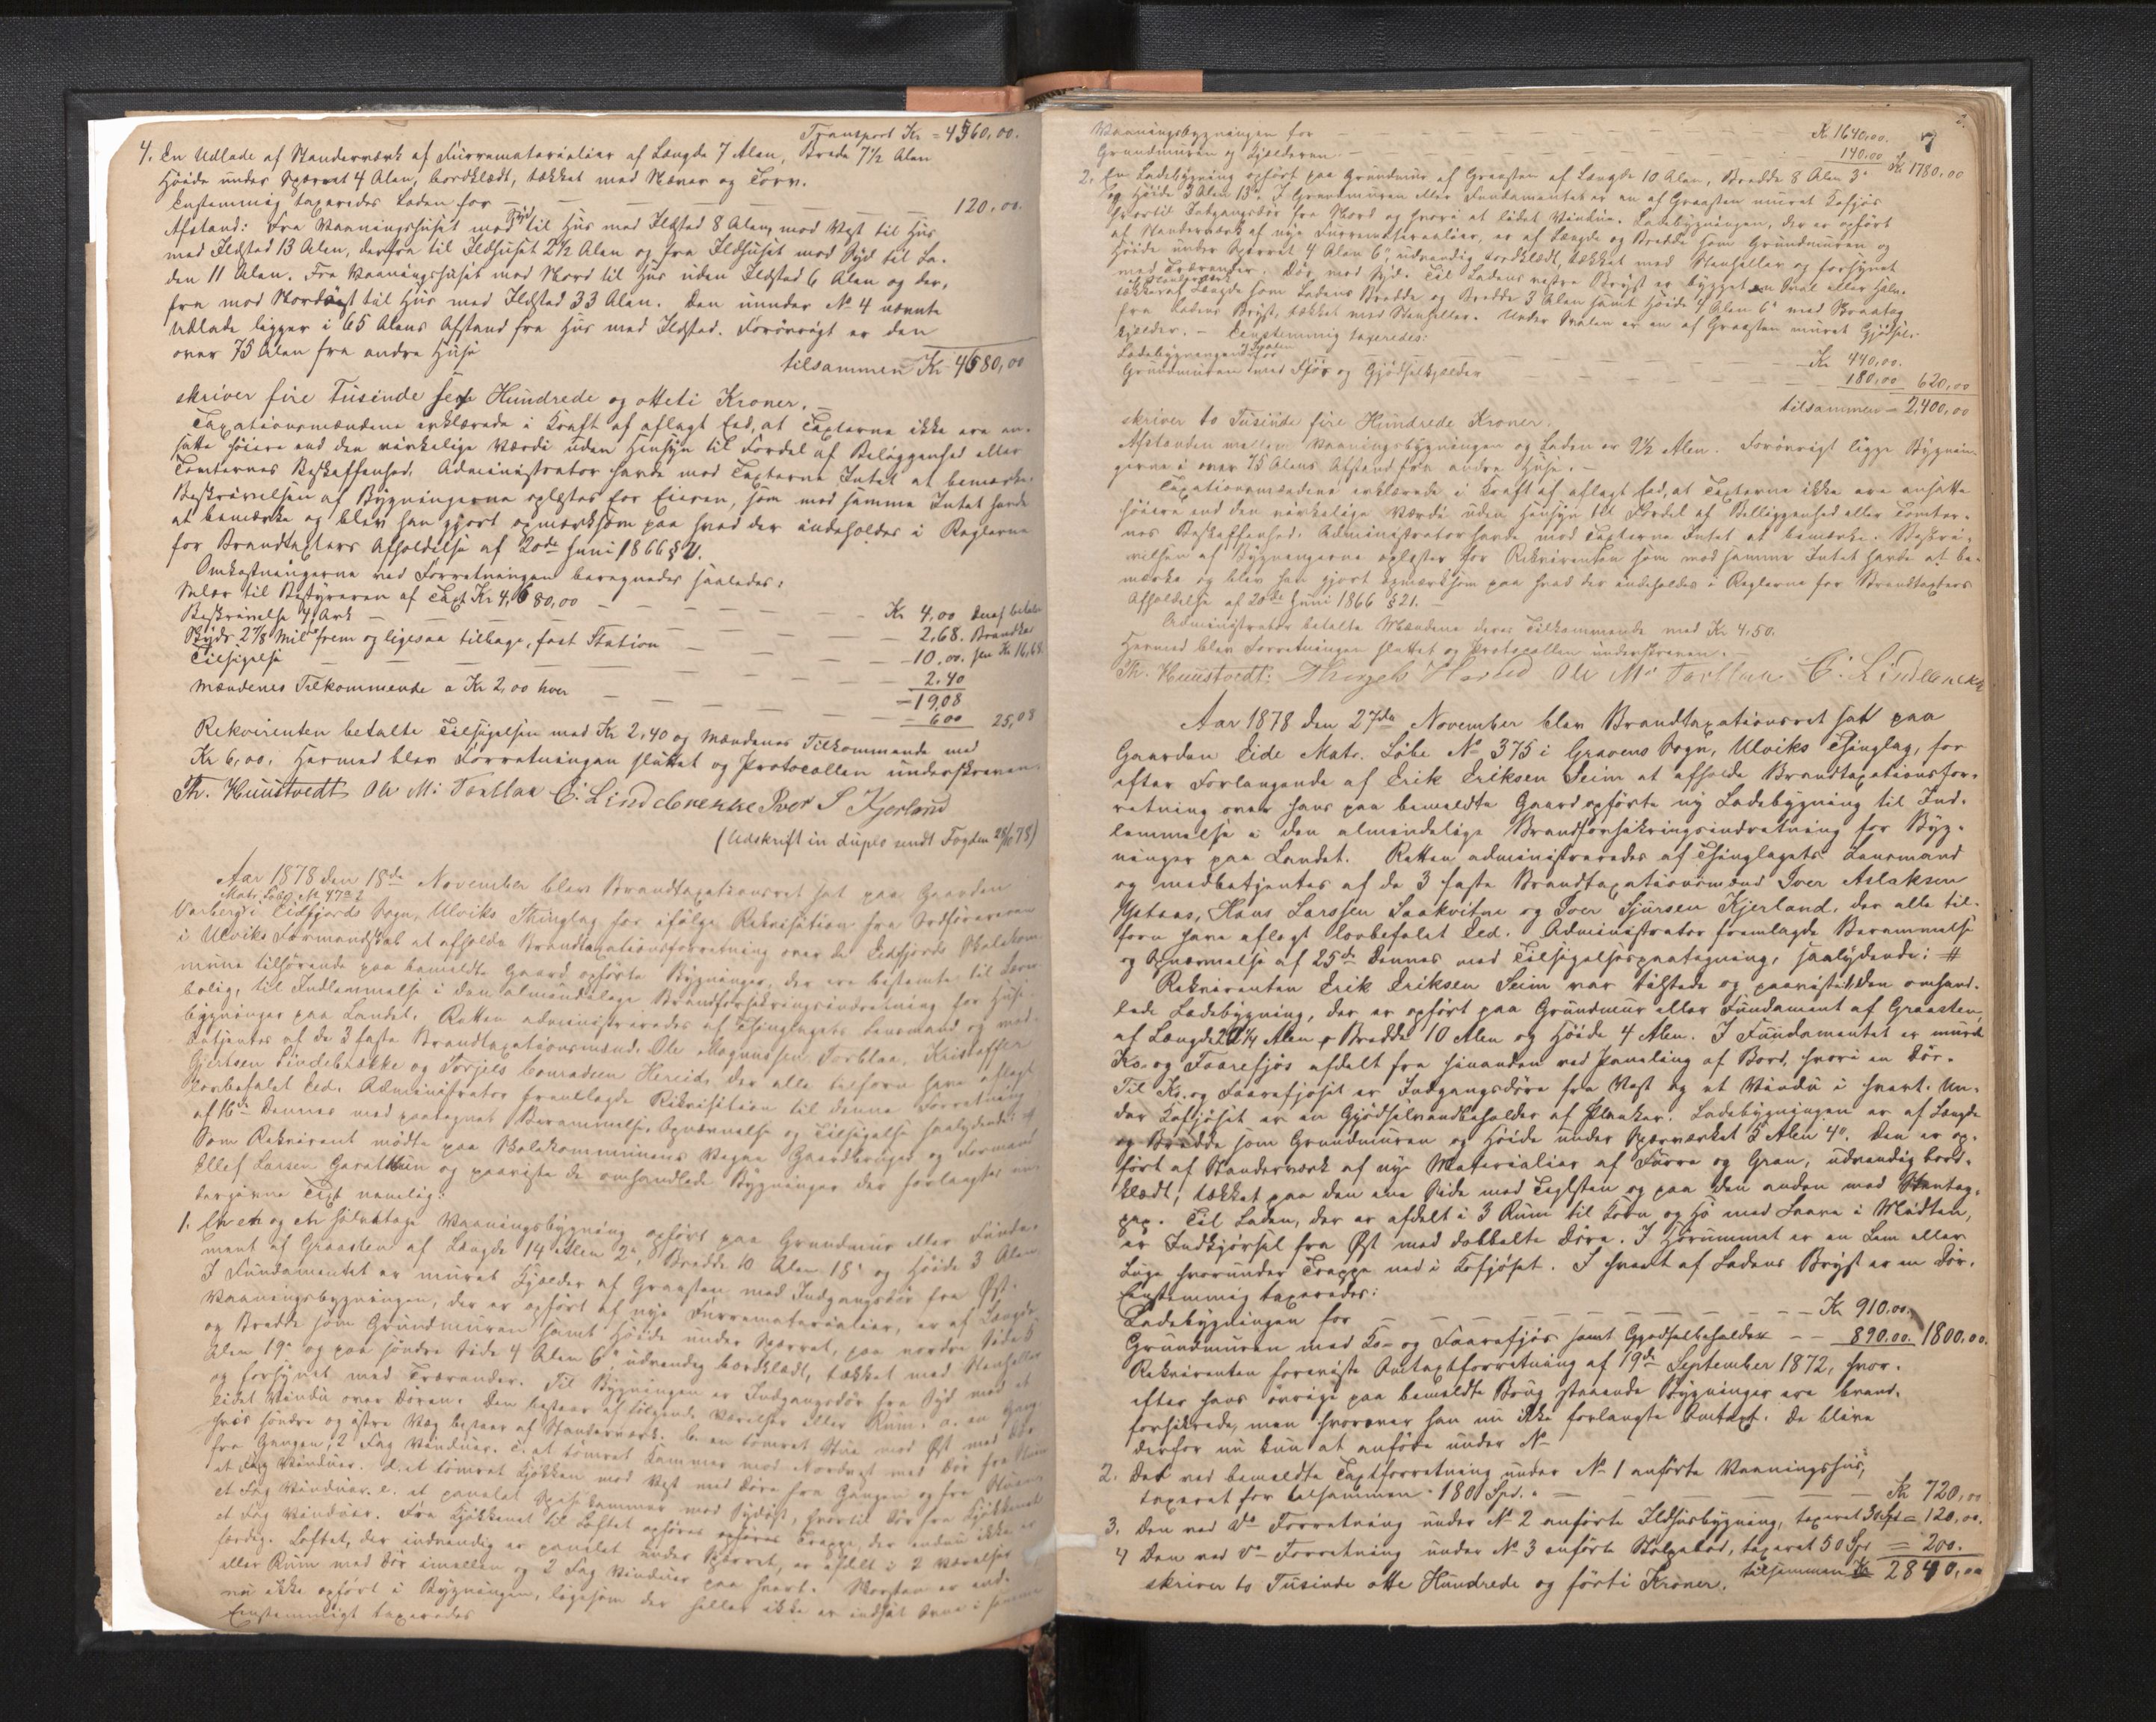 Transport Kr = 4560,00.
4. En Udlade af Standerværk af Furrematerialier af Længde 7 Alen, Brede 7½ Alen
Høide under Spærret 4 Alen, bordklædt, tækket med Næver og Torv.
Enstemmig taxeredes Laden for — — — — 120.00.
Afstand: Fra Vaaningshuset mod Syd til Hus med Ildsted 8 Alen, mod Vest til Hus
med Ildsted 13 Alen, derfra til Ildhuset 2½ Alen og fra Ildhuset mod Syd til La-
den 11 Alen. Fra Vaaningshuset mod Nord til Hus uden Ildsted 6 Alen og der-
fra mod Nordøst til Hus med Ildsted 33 Alen. Den under No 4 nævnte
Udlade ligger i 65 Alens Afstand fra Hus med Ildsted. Forøvrigt er den
over 75 Alen fra andre Huse
tilsammen Kr 4680,00
skriver fire Tusinde sex Hundrede og otteti Kroner.
Taxationsmændene erklærede i Kraft af aflagt Eed, at Taxterne ikke ere an-
satte høiere end den virkelige Værdi uden Hensyn til Fordel af Beliggenhed eller
Tomternes Beskaffenhed. Administrator havde mod Taxterne Intet at bemærke.
Beskrivelsen af Bygningerne oplæstes for Eieren, som mod samme Intet havde
at bemærke og blev han gjort opmærksom paa hvad der indeholdes i Reglerne
for Brandtaxters Afholdelse af 20de Juni 1866 § 21.
Omkostningerne ved Forretningen beregnedes saaledes:
Salær til Bestyreren af Taxt Kr 4,680,00 — — — Kr 4,00 Deraf betaler
Beskrivelse 4 Ark — — — 2,68. Brandka
Skyds 2 7/8 Mil frem og ligesaa tilbage, fast Station — — 10,00. sen Kr 16,68
Tilsigelse — — — 2.40
— 19,08
Mændenes Tilkommende a Kr 2,00 hver — — — 6 00 25,08
Rekvirenten betalte Tilsigelsen med Kr 2,40 og Mændenes Tilkommende med
Kr 6,00. Hermed blev Forretningen sluttet og Protocollen underskreven.
Th. Huustvedt Ole M: Torblaa C. Lindebrekke Iver S Kjerland
(Udskrift in duplo sendt Fogden 28/10 78)
Aar 1878 den 18de November blev Brandtaxationsret sat paa Gaarden
Matr. Løbe No 47a2
Varberg i Eidfjords Sogn, Ulviks Thinglag for ifølge Rekvisition fra Ordføreren
i Ulviks Formandskab at afholde Brandtaxationsforretning over de Eidfjords Skolekom-
mune tilhørende paa bemeldte Gaard opførte Bygninger, der ere bestemte til Lærer-
bolig, til Indlemmelse i den almindelige Brandforsikringsindretning for
bygninger paa Landet. Retten administreredes af Thinglagets Lensmand og med-
betjentes af de 3 faste Brandtaxationsmænd, Ole Magnussen Torblaa, Kristoffer
Gjertsen Lindebrække og Torgiels Conradsen Hereid, der alle tilforn have aflagt
lovbefalet Eed. Administrator fremlagde Rekvisition til denne Forretning
af 16de Dennes med paategnet Berammelse, Opnævnelse og Tilsigelse saalydende: #
Som Rekvirent mødte paa Skolekommunens Vegne Gaardbruger og Formand
Ellef Larsen Garathun og paaviste de omhandlede Bygninger der forlangtes
Taxt nemlig:
1. En en og en halv Etage Vaaningsbygning opført paa Grundmur eller Funda-
ment af Graasten af Længde 14 Alen 2", Bredde 10 Alen 18" og Høide 3 Alen
I Fundamentet er muret Kjælder af Graasten med Indgangsdør fra Øst.
Vaaningsbygningen, der er opført af nye Furrematerialier, er af Længde
og Bredde som Grundmuren samt Høide under Spærret, paa nordre Side 5
Alen 19" og paa søndre Side 4 Alen 6", udvendig bordklædt, tækket med Stenheller
og forsynet med Trærender. Til Bygningen er Indgangsdør fra Syd med et
lidet Vindu over Døren. Den bestaar af følgende Værelser eller Rum: a. en Gang
hvis søndre og østre Væg bestaar af Standerværk. b. en tømret Stue mod Øst med Dør
fra Gangen, 2 Fag Vinduer. c. et tømret Kammer mod Nordvest med Dør fra Stuen
et Fag Vinduer. d. et tømret Kjøkken mod Vest med Døre fra Gangen og fra Stuen
et Fag Vinduer. e. et panelet Spisekammer mod Sydvest, hvortil Dør fra Kjøkkenet
et Fag Vinduer. Fra Kjøkkenet til Loftet opføres Trappe, der endnu ikke er
færdig. Loftet, der indvendig er panelet under Spærret, er afdelt i 2 Værelser
eller Rum med Dør imellem og 2 Fag Vinduer paa hvert. Skorsten er end-
nu ikke opført i Bygningen, ligesom der heller ikke er indsat Ovne i samme
Eenstemmigt taxeredes
Vaaningsbygningen for — — — Kr. 1640,00.
Grundmuren og Kjælderen — — — 140.00 Kr 1780,00
2. En Ladebygning opført paa Grundmur af Graasten af Længde 10 Alen, Bredde 8 Alen 3"
og Høide 3 Alen 13". I Grundmuren eller Fundamentet er en af Graasten muret Kofjøs
hvortil Indgangsdør fra Nord og hvori et lidet Vindue. Ladebygningen, der er opført
af Standerværk af nye Furrematerialier, er af Længde og Bredde som Grundmuren og
Høide under Spærret 4 Alen 6", udvendig bordklædt, tækket med Stenheller og forsynet
med Trærender. Dør mod Syd. Til Ladens vestre Bryst er bygget en Sval eller Halv-
tække af Standerværk af Længde som Ladens Bredde og Bredde 3 Alen samt Høide 4 Alen 6" med Skraatag
fra Ladens Bryst, tækket med Stenheller. Under Svalen er en af Graasten muret Gjødsel-
kjelder. — Eenstemmig taxeredes:
Ladebygningen og Svalen for — — — Kr 440,00.
Grundmuren med Fjøs og Gjødselkjelder — — — 180,00 620,00
tilsammen = 2,400,00
skriver to Tusinde fire Hundrede Kroner.
Afstanden mellem Vaaningsbygningen og Laden er 9½ Alen. Forøvrigt ligge Bygnin-
gerne i over 75 Alens Afstand fra andre Huse. —
Taxationsmændene erklærede i Kraft af aflagt Eed, at Taxterne ikke ere ansatte
høiere end den virkelige Værdi uden Hensyn til Fordel af Beliggenhed eller Tomter-
nes Beskaffenhed. Administrator havde mod Taxterne Intet at bemærke. Beskri-
velsen af Bygningerne oplæstes for Rekvirenten som mod samme Intet havde at be-
mærke og blev han gjort opmærksom paa hvad der indeholdes i Reglerne for Brandtaxters
Afholdelse af 20de Juni 1866 § 21. —
Administrator betalte Mændene deres Tilkommende med Kr 4,50.
Hermed blev Forretningen sluttet og Protocollen underskreven. —
Th. Huustvedt: Thorgels Hereid Ole M: Torblaa C. Lindebrekke
Aar 1878 den 27de November blev Brandtaxationsret sat paa
Gaarden Eide Matr. Løbe No 375 i Gravens Sogn, Ulviks Thinglag, for
efter Forlangende af Erik Eriksen Seim at afholde Brandtaxationsfor-
retning over hans paa bemeldte Gaard opførte ny Ladebygning til Ind-
lemmelse i den almindelige Brandforsikringsindretning for Byg-
ninger paa Landet. Retten administreredes af Thinglagets Lensmand
og medbetjentes af de 3 faste Brandtaxationsmænd Iver Aslaksen
Ystaas, Hans Larssen Saakvitne og Iver Sjursen Kjerland, der alle til-
forn have aflagt lovbefalet Eed. Administrator fremlagde Berammelse
og Opnævnelse af 25de Dennes med Tilsigelsespaategning, saalydende: #
Rekvirenten Erik Eriksen Seim var tilstede og paaviste: 1, Den omhand-
lede Ladebygning, der er opført paa Grundmur eller Fundament af Graasten,
af Længde 20¼ Alen, Bredde 10 Alen og Høide 4 Alen. I Fundamentet er muret
Ko- og Faarefjøs afdelt fra hinanden ved Paneling af Bord, hvori en Dør.
Til Ko- og Faarefjøset er Indgangsdøre fra Vest og et Vindu i hvert. Un-
der Kofjøset er en Gjødselvandbeholder af Planker. Ladebygningen er af Længde
og Bredde som Grundmuren og Høide under Spærværket 5 Alen 4". Den er op-
ført af Standerværk af nye Materialier af Furre og Gran, udvendig bord-
klædt, tækket paa den ene Side med Teglsten og paa den anden med
Til Laden, der er afdelt i 3 Rum til Korn og Hø med Laave i Midten,
er Indkjørsel fra Øst med dobbelte Døre. I Hørummet er en Lem eller
Luge hvorunder Trappe ned i Kofjøset. I hvert af Ladens Bryst er en Dør.
Enstemmig taxeredes:
Ladebygningen for — — — Kr 910.00.
Grundmuren med Ko- og Faarefjøs samt Gjødselbeholder — — 890.00. 1800.00.
Rekvirenten foreviste Omtaxtforretning af 19de September 1872, hvor-
efter hans øvrige paa bemeldte Brug staaende Bygninger ere brand-
forsikrede, men hvorover han nu ikke forlangte Omtaxt. De blive
derfor nu kun at anføre under No
2. Det ved bemeldte Taxtforretning under No 1 anførte Vaaningshus,
taxeret for tilsammen 180 Spd. — — — Kr 720,00
3. Den ved Do Forretning under No 2 anførte Ildhusbygning, taxeret 30 Spd = 120,00.
4 Den ved Do Forretning under No 3 anførte Stolpebod, taxeret 50 Spd = 200.
tilsammen Kr 2840,00
skriver to Tusinde otte Hundrede og førti Kroner.